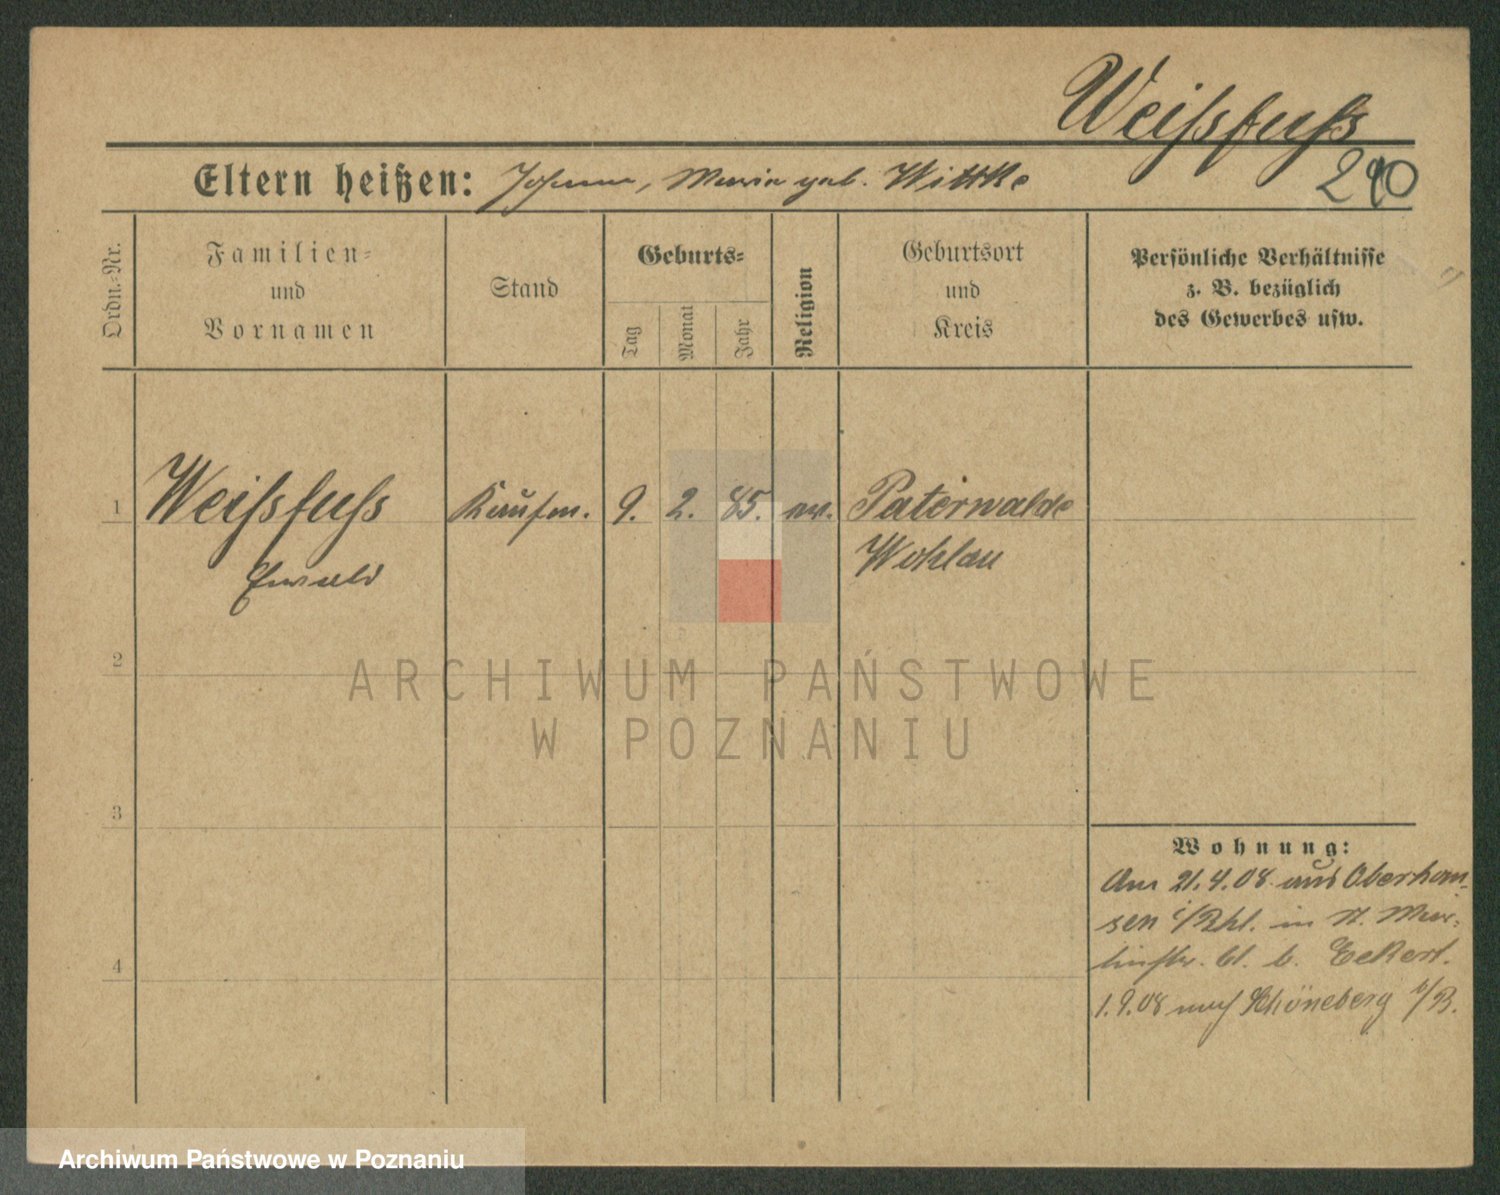 Weißfuß
290
Eltern heißen: Johann, Maria geb. Wittke
Ordn.-Nr.
Familien-
und
Vornamen
Stand
Geburts-
Tag
Monat
Jahr
Religion
Geburtsort
und
Kreis
Persönliche Verhältnisse
z. B. bezüglich
des Gewerbes usw.
1 Weißfuß Kaufm. 9. 2. 85. ev. Paterwalde
Ewald Wohlau
2
3
4
Wohnung:
Am 21.4.08 aus Oberhau-
sen i/Rhl. in St. Mar-
tinstr. 61. b. Eckert.
1.9.08 nach Schöneberg b/B.
ARCHIWUM PAŃSTWOWE
W POZNANIU
Archiwum Państwowe w Poznaniu